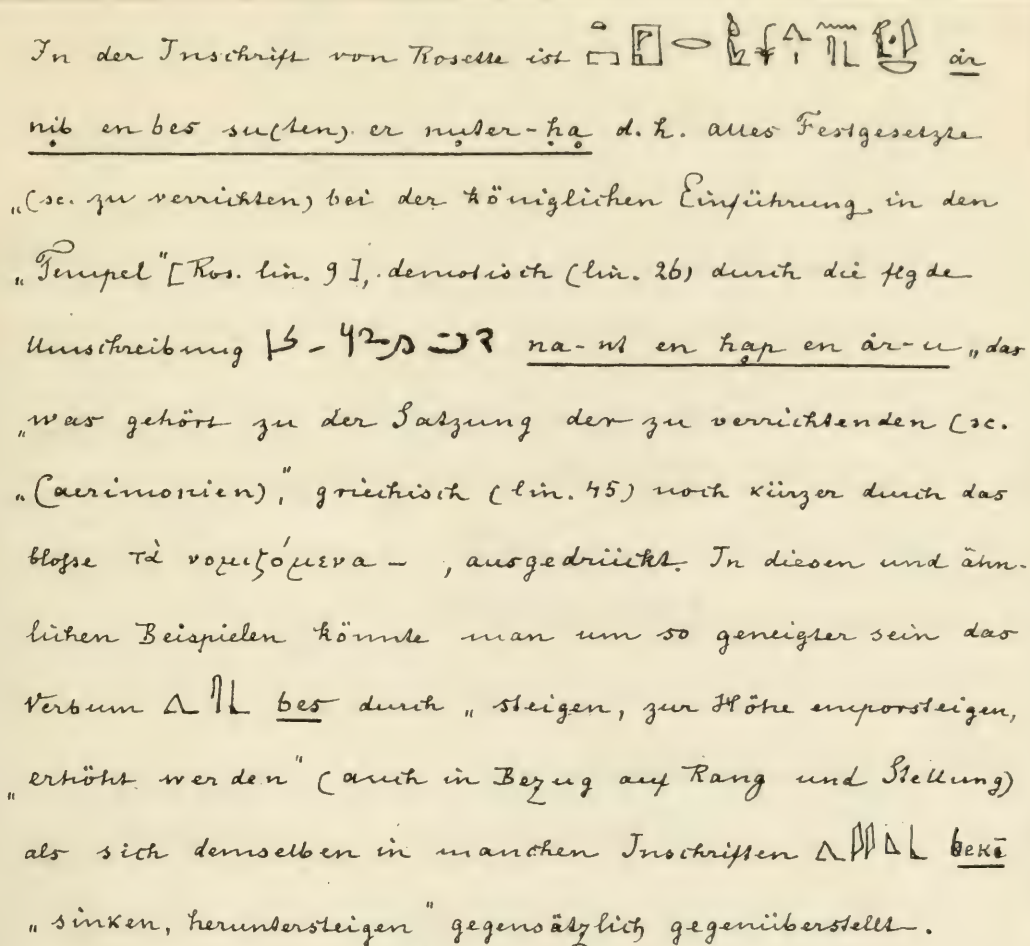 In der Inschrift von Rosette ist är
nib en bes su(ten) er nuter-ḥa d. h. alles Festgesetzte
„(sc. zu verrichten) bei der königlichen Einführung in den
„Tempel" [Ros. lin. 9], demotisch (lin. 26) durch die flgde
Umschreibung na-nt en hap en àr-u „das
„was gehört zu der Satzung der zu verrichtenden (sc.
„Caerimonien)," griechisch (lin. 45) noch kürzer durch das
blosse τὰ νομιζόμενα – , ausgedrückt. In diesen und ähn-
lichen Beispielen könnte man um so geneigter sein das
Verbum bes durch „steigen, zur Höhe emporsteigen,
„erhöht werden" (auch in Bezug auf Rang und Stellung)
als sich demselben in manchen Inschriften bekī
„sinken, heruntersteigen" gegensätzlich gegenüberstellt.